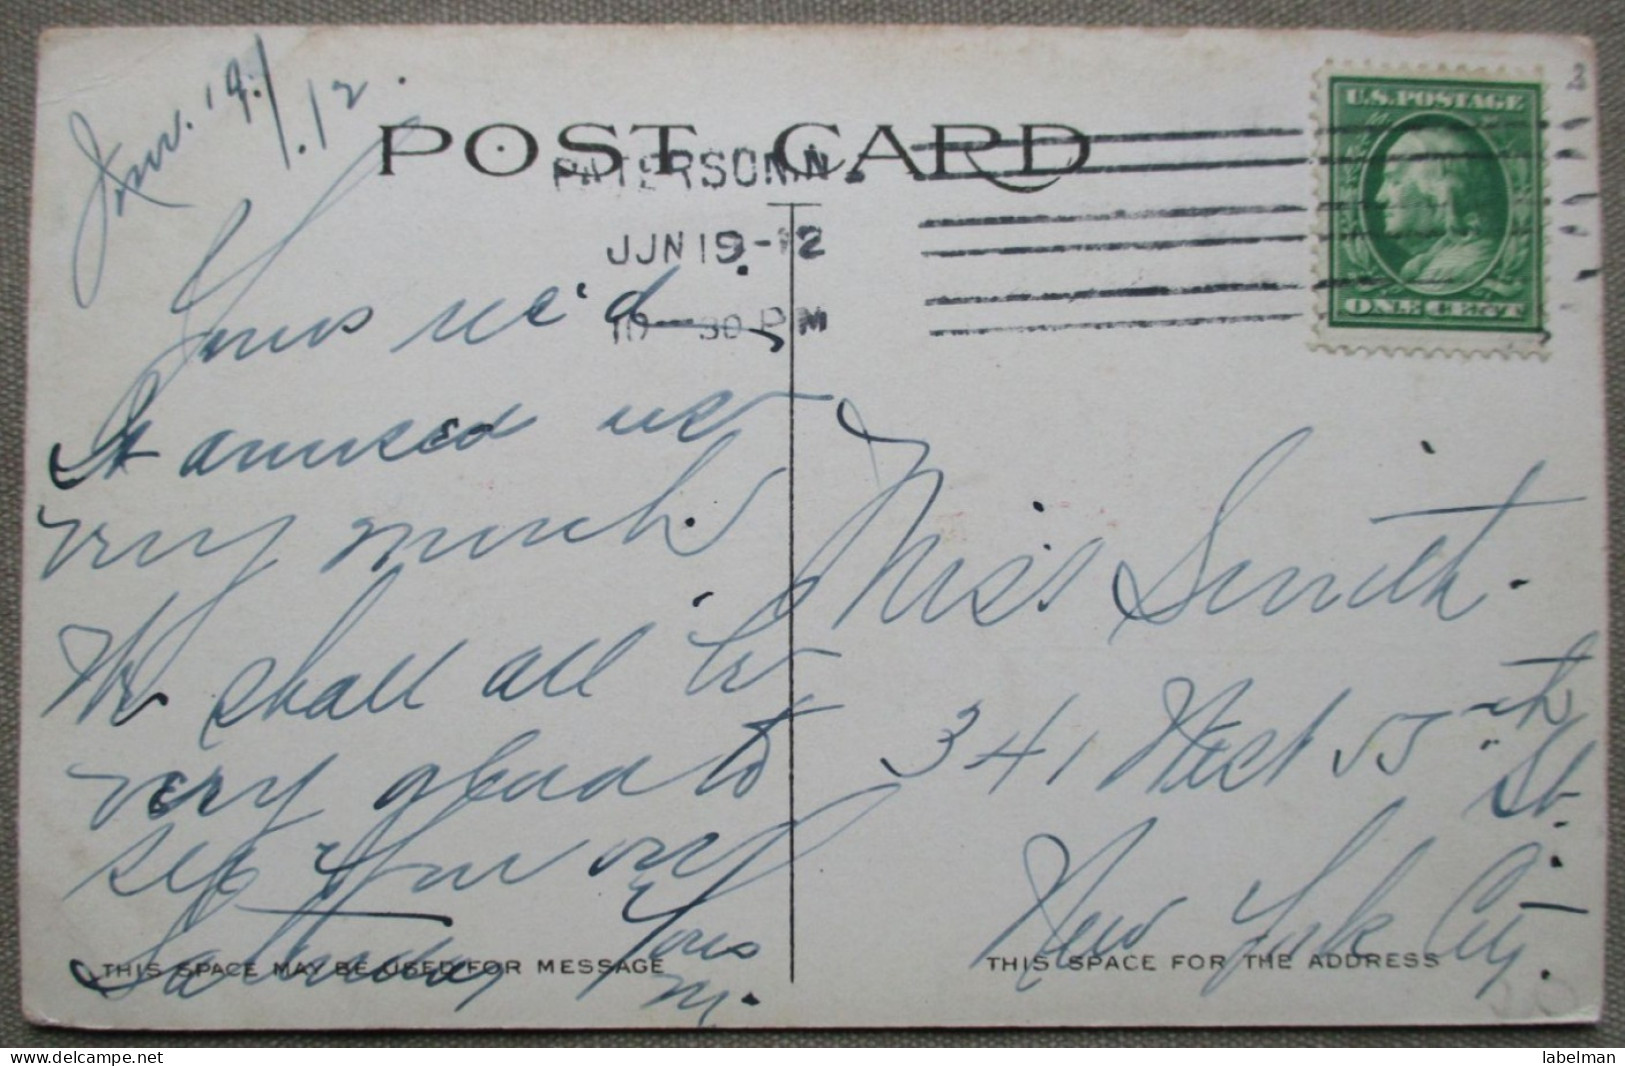 Jun. 19/12.
POST CARD
PATERSON, N.
JUN 19 -12
10-30 PM
U.S. POSTAGE
ONE CENT
Yours rec'd.
It amused us
very much.
We shall all be
very glad to
see you on
Saturday
Yours
M.
Miss Smith.
341 West 55th
St.
New York City.
THIS SPACE MAY BE USED FOR MESSAGE
THIS SPACE FOR THE ADDRESS
labelman
delcampe.net